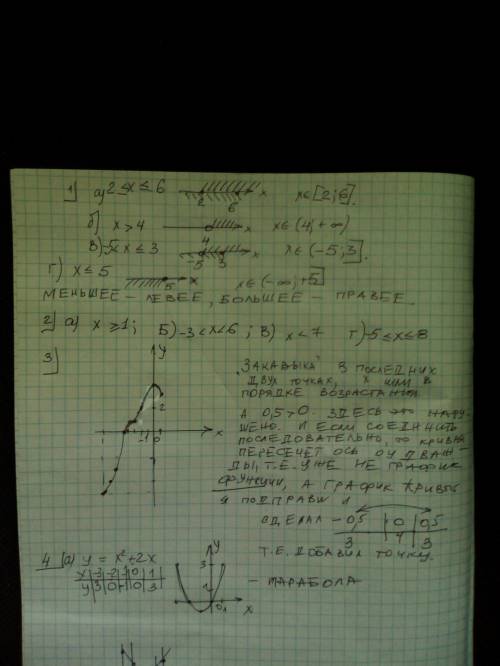 1) а) 2≤x≤6 2 6 x x∈[2;6].
б) x>4 4 x x∈(4;+∞)
в) -5<x≤3 -5 3 x x∈(-5;3].
г) x≤5 5 x x∈(-∞;+5]
МЕНЬШЕЕ – ЛЕВЕЕ, БОЛЬШЕЕ – ПРАВЕЕ
2) а) x≥1; Б) -3<x<6; В) x<7 Г) -5≤x≤8
3) y 2 -1 0 x
"ЗАКАВЫКА" В ПОСЛЕДНИХ
ДВУХ ТОЧКАХ, X ШЛИ В
ПОРЯДКЕ ВОЗРАСТАНИЯ
А 0,5>0. ЗДЕСЬ ЭТО НАРУ-
ШЕНО. И ЕСЛИ СОЕДИНИТЬ
ПОСЛЕДОВАТЕЛЬНО, ТО КРИВАЯ
ПЕРЕСЕЧЕТ ОСЬ OY ДВАЖ-
ДЫ, Т.Е. УЖЕ НЕ ГРАФИК
ФУНКЦИИ, А ГРАФИК КРИВОЙ
Я ПОДПРАВИЛ И
СДЕЛАЛ -0,5 0 0,5
3 4 3
Т.Е. ДОБАВИЛ ТОЧКУ.
4) а) y = x²+2x
x -3 -2 -1 0 1
y 3 0 -1 0 3
y 3 1 0 1 x
– ПАРАБОЛА